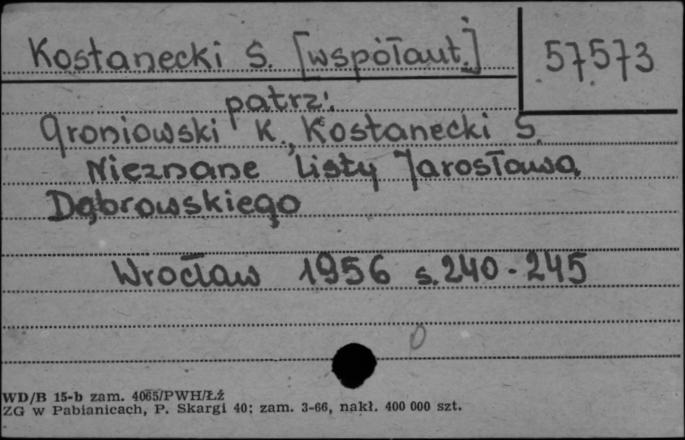 Kostanecki S. [współaut.] 57573
patrz:
Groniowski K., Kostanecki S.
Nieznane listy Jarosława
Dąbrowskiego
Wrocław 1956 s. 240-245
0
WD/B 15-b zam. 4065/PWH/ŁŹ
ZG w Pabianicach, P. Skargi 40; zam. 3-66, nakł. 400 000 szt.